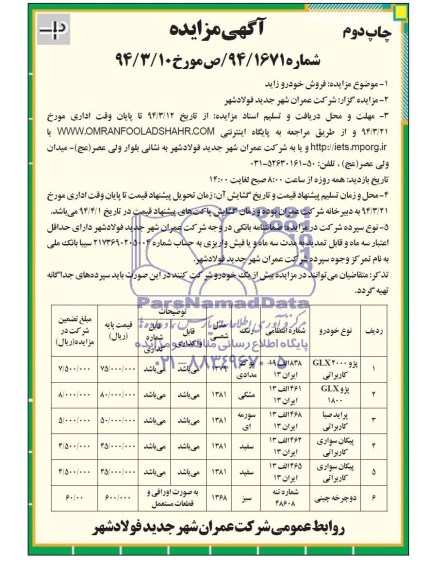 آگهی مزایده
چاپ دوم
شماره ۹۴/۱۶۷۱/ص مورخ ۹۴/۳/۱۰
۱- موضوع مزایده: فروش خودرو زاید
۲- مزایده گزار: شرکت عمران شهر جدید فولادشهر
۳- مهلت و محل دریافت و تسلیم اسناد مزایده: از تاریخ ۹۴/۳/۱۲ تا پایان وقت اداری مورخ
۹۴/۳/۲۱ و از طریق مراجعه به پایگاه اینترنتی WWW.OMRANFOOLADSHAHR.COM یا
http://iets.mporg.ir و یا به شرکت عمران شهر جدید فولادشهر به نشانی بلوار ولی عصر(عج)- میدان
ولی عصر(عج) ، تلفن: ۵۰-۵۲۶۳۰۱۶۱-۰۳۱
تاریخ بازدید: همه روزه از ساعت ۸:۰۰ صبح لغایت ۱۴:۰۰
۴- محل و زمان تسلیم پیشنهاد قیمت و تاریخ گشایش آن: زمان تحویل پیشنهاد قیمت تا پایان وقت اداری مورخ
۹۴/۳/۲۱ به دبیرخانه شرکت عمران بوده و زمان گشایش پاکت‌های پیشنهاد قیمت در تاریخ ۹۴/۴/۱ می‌باشد.
۵- نوع سپرده شرکت در مزایده: ضمانتنامه بانکی در وجه شرکت عمران شهر جدید فولادشهر دارای حداقل
اعتبار سه ماه و قابل تمدید به مدت سه ماه و یا فیش واریزی به حساب شماره ۲۱۷۳۶۹۰۲۰۵۰۰۴ سیبا بانک ملی
به نام تمرکز وجوه سپرده شرکت عمران شهر جدید فولادشهر.
تذکر: متقاضیان می‌توانند در مزایده بیش از یک خودرو شرکت کنند در این صورت باید سپرده‌های جداگانه
تهیه گردد.
ParsNamadData
پایگاه اطلاع رسانی مناقصه و مزایده
۰۲۱-۸۸۳۴۹۶۷۰-۵
ردیف نوع خودرو شماره انتظامی رنگ مدل شمسی توضیحات قابل واگذاری قابل شماره گذاری قیمت پایه (ریال) مبلغ تضمین شرکت در مزایده(ریال)
۱ پژو GLX۲۰۰۰ کاربراتی ایران ۱۳ مدادی می‌باشد می‌باشد ۷۵/۰۰۰/۰۰۰ ۷/۵۰۰/۰۰۰
۲ پژو GLX ۱۸۰۰ ۴۶۱الف۱۳ ایران ۱۳ مشکی ۱۳۸۱ می‌باشد می‌باشد ۸۰/۰۰۰/۰۰۰ ۸/۰۰۰/۰۰۰
۳ پراید صبا کاربراتی ۴۶۸الف۱۳ ایران ۱۳ سورمه ای ۱۳۸۱ می‌باشد می‌باشد ۵۰/۰۰۰/۰۰۰ ۵/۰۰۰/۰۰۰
۴ پیکان سواری کاربراتی ۴۶۲الف۱۳ ایران ۱۳ سفید ۱۳۸۱ می‌باشد می‌باشد ۴۵/۰۰۰/۰۰۰ ۴/۵۰۰/۰۰۰
۵ پیکان سواری کاربراتی ۴۶۵الف۱۳ ایران ۱۳ سفید ۱۳۸۱ می‌باشد می‌باشد ۴۵/۰۰۰/۰۰۰ ۴/۵۰۰/۰۰۰
۶ دوچرخه چینی شماره تنه ۴۸۶۰۸ سبز ۱۳۶۸ به صورت اوراقی و قطعات مستعمل ۶۰۰/۰۰۰ ۶۰/۰۰
روابط عمومی شرکت عمران شهر جدید فولادشهر